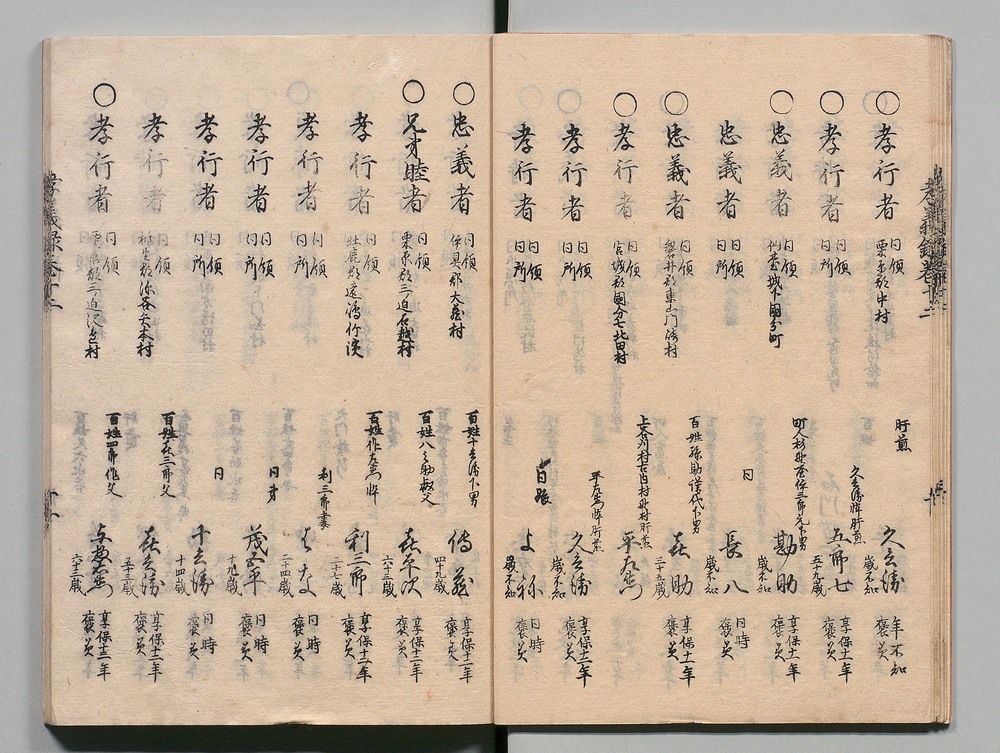 孝義録巻十二
○孝行者 同領 栗原郡中村 肝煎 久兵衛 歳不知 年不知 褒美
○孝行者 同領 同所 久兵衛倅肝煎 五郎七 五十九歳 享保十一年 褒美
○忠義者 同領 仙台城下国分町 町人 勘助 歳不知 享保十一年 褒美
忠義者 同領 同所 同 長八 歳不知 同時 褒美
○忠義者 同領 磐井郡東山門崎村 百姓弥助譜代下男 喜助 三十五歳 享保十一年 褒美
○孝行者 同領 宮城郡国分七北田村 褒美
孝行者 同領 同所 久兵衛 歳不知 享保十一年 褒美
孝行者 同領 同所 よね 歳不知 同時 褒美
○忠義者 同領 伊具郡大蔵村 百姓十兵衛下男 伝蔵 四十九歳 享保十一年 褒美
○兄弟睦者 同領 栗原郡三迫石越村 百姓八之助叔父 喜平次 六十三歳 享保十一年 褒美
孝行者 同領 牡鹿郡遠嶋竹浜 百姓作左衛門倅 利三郎 三十七歳 享保十二年 褒美
孝行者 同領 同所 利三郎妻 三十四歳 同時 褒美
孝行者 同領 同所 同弟 茂平 十九歳 同時 褒美
孝行者 同領 同所 同 十兵衛 十四歳 同時 褒美
孝行者 同領 百姓喜三郎父 喜兵衛 五十三歳 享保十二年 褒美
○孝行者 同領 百姓四郎作父 六十三歳 享保十二年 褒美
孝義録巻十二
十一